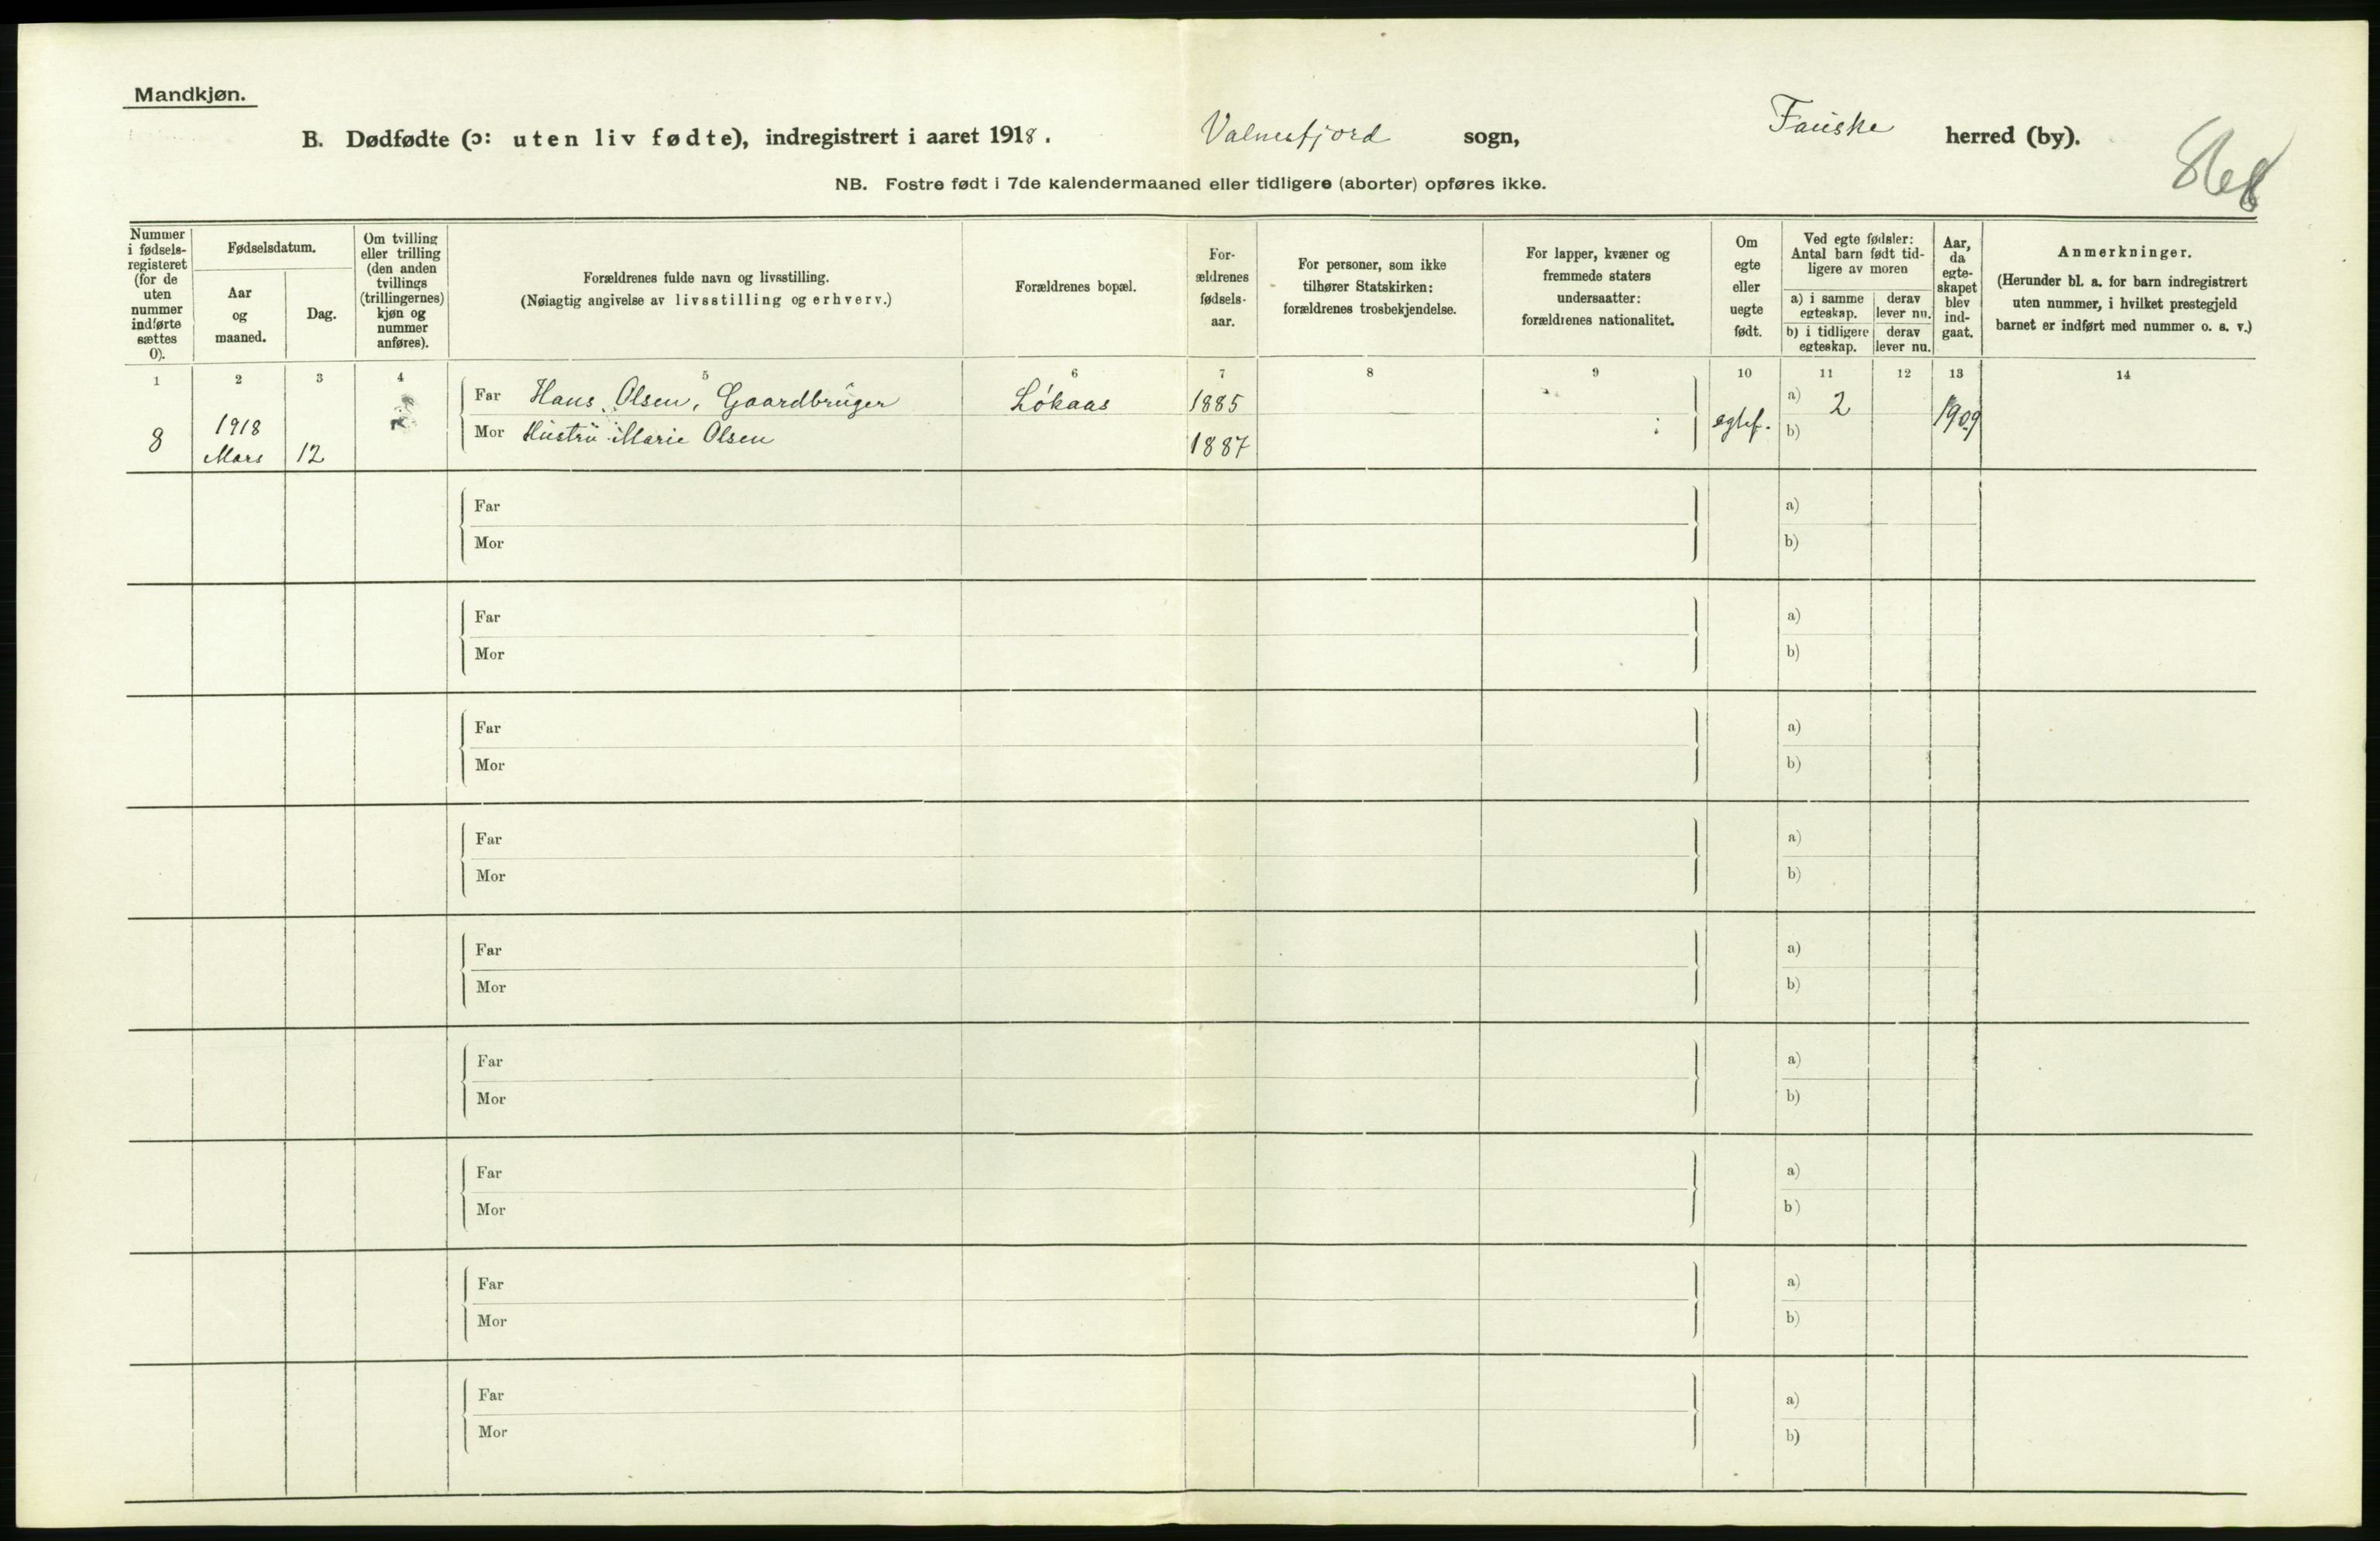 Mandkjøn.
B. Dødfødte (ɔ: uten liv fødte), indregistrert i aaret 1918. Valnesfjord sogn, Fauske herred (by).
NB. Fostre født i 7de kalendermaaned eller tidligere (aborter) opføres ikke.
Nummer i fødsels-registeret (for de uten nummer indførte sættes 0).
Fødselsdatum.
Aar og maaned.
Dag.
Om tvilling eller trilling (den anden tvillings (trillingernes) kjøn og nummer anføres).
Forældrenes fulde navn og livsstilling.
(Nøiagtig angivelse av livsstilling og erhverv.)
Forældrenes bopæl.
For-ældrenes fødsels-aar.
For personer, som ikke tilhører Statskirken: forældrenes trosbekjendelse.
For lapper, kvæner og fremmede staters undersaatter: forældrenes nationalitet.
Om egte eller uegte født.
Ved egte fødsler: Antal barn født tid-ligere av moren
a) i samme egteskap. derav lever nu.
b) i tidligere egteskap. derav lever nu.
Aar, da egte-skapet blev ind-gaat.
Anmerkninger.
(Herunder bl. a. for barn indregistrert uten nummer, i hvilket prestegjeld barnet er indført med nummer o. s. v.)
1 2 3 4 5 6 7 8 9 10 11 12 13 14
Far Hans Olsen, Gaardbruger Løkaas 1885 a) 2
8 1918 Mars 12 Mor Hustru Marie Olsen 1887 egtef. b) 1909
Far a)
Mor b)
Far a)
Mor b)
Far a)
Mor b)
Far a)
Mor b)
Far a)
Mor b)
Far a)
Mor b)
Far a)
Mor b)
Far a)
Mor b)
Far a)
Mor b)